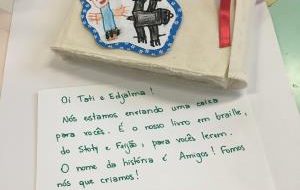 Oi Tati e Edjalma!
Nós estamos enviando uma caixa
para vocês. É o nosso livro em braille,
do Stoty e Feijão, para vocês lerem.
O nome da história é Amigos! Fomos
nós que criamos!